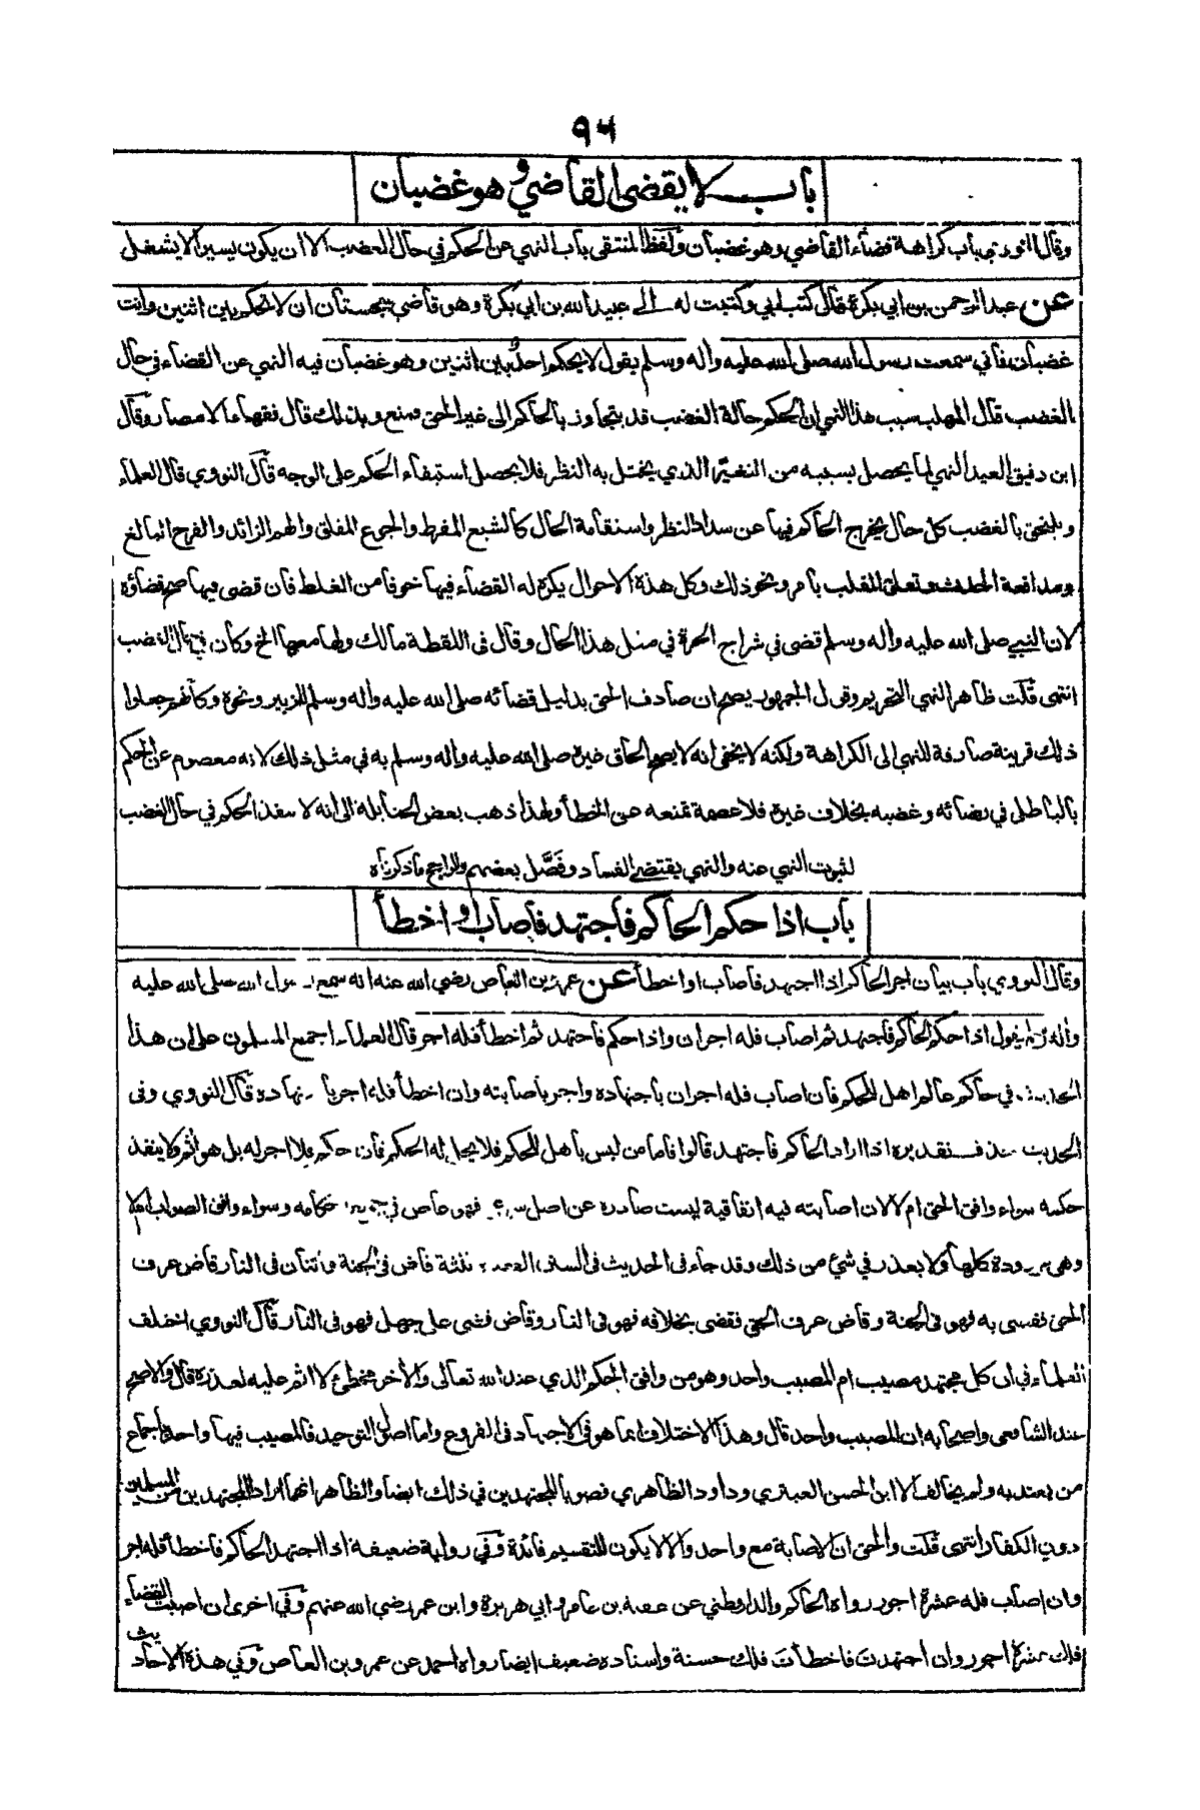 ٩٤
باب لا يقضى القاضي وهو غضبان
وقال النووي باب كراهة قضاء القاضي وهو غضبان ولفظ المنتقى باب النهي عن الحكم في حال الغضب الا ان يكون يسيرا لا يشغل
عن عبد الرحمن بن ابي بكرة قال كتب ابي وكتبت له الى عبيد الله بن ابي بكرة وهو قاضي بسجستان ان لا تحكم بين اثنين وانت
غضبان فاني سمعت رسول الله صلى الله عليه واله وسلم يقول لا يحكم احد بين اثنين وهو غضبان فيه النهي عن القضاء في حال
الغضب قال المهلب سبب هذا النهي ان الحكم حالة الغضب قد يتجاوز بالحاكم الى غير الحق فمنع وبذلك قال فقهاء الامصار وقال
ابن دقيق العيد النهي لما يحصل بسببه من التغير الذي يختل به النظر فلا يحصل استيفاء الحكم على الوجه قال النووي قال العلماء
ويلتحق بالغضب كل حال يخرج الحاكم فيها عن سداد النظر واستقامة الحال كالشبع المفرط والجوع المقلق والهم الزائد والفرح البالغ
ومدافعة الحدث وتعلق القلب بامر ونحو ذلك وكل هذه الاحوال يكره له القضاء فيها خوفا من الغلط فان قضى فيها صح قضاؤه
لان النبي صلى الله عليه واله وسلم قضى في شراج الحرة في مثل هذا الحال وقال في اللقطة مالك ولها معها الخ وكان في حال الغضب
انتهى قلت ظاهر النهي التحريم وقول الجمهور يصح ان صادف الحق بدليل قضائه صلى الله عليه واله وسلم للزبير ونحوه وكأنهم جعلوا
ذلك قرينة صارفة للنهي الى الكراهة ولكنه لا يخفى انه لا يصح الحاق غيره صلى الله عليه واله وسلم به في مثل ذلك لانه معصوم عن الحكم
بالباطل في رضائه وغضبه بخلاف غيره فلا عصمة تمنعه عن الخطأ ولهذا ذهب بعض الحنابلة الى انه لا ينفذ الحكم في حال الغضب
لثبوت النهي عنه والنهي يقتضي الفساد وفصّل بعضهم والراجح ما ذكرناه
باب اذا حكم الحاكم فاجتهد فاصاب او اخطأ
وقال النووي باب بيان اجر الحاكم اذا اجتهد فاصاب او اخطأ عن عمرو بن العاص رضي الله عنه انه سمع رسول الله صلى الله عليه
واله وسلم يقول اذا حكم الحاكم فاجتهد ثم اصاب فله اجران واذا حكم فاجتهد ثم اخطأ فله اجر قال العلماء اجمع المسلمون على ان هذا
الحديث في حاكم عالم اهل للحكم فان اصاب فله اجران باجتهاده واجر باصابته وان اخطأ فله اجر باجتهاده قال النووي وفى
الحديث محذوف تقديره اذا اراد الحاكم فاجتهد قالوا فاما من ليس باهل للحكم فلا يحل له الحكم فان حكم فلا اجر له بل هو آثم ولا ينفذ
حكمه سواء وافق الحق ام لا لان اصابته فيه اتفاقية ليست صادرة عن اصل شرعي فهو عاص في جميع احكامه وسواء وافق الصواب ام لا
وهى مردودة كلها ولا يعذر في شيء من ذلك وقد جاء في الحديث في السنن القضاة ثلثة قاض في الجنة واثنان في النار قاض عرف
الحق فقضى به فهو في الجنة وقاض عرف الحق فقضى بخلافه فهو في النار وقاض قضى على جهل فهو في النار قال النووي اختلف
العلماء في ان كل مجتهد مصيب ام المصيب واحد وهو من وافق الحكم الذي عند الله تعالى والآخر مخطئ لا اثم عليه لعذره قال والاصح
عند الشافعى واصحابه ان المصيب واحد قال وهذا الاختلاف انما هو في الاجتهاد في الفروع واما اصول التوحيد فالمصيب فيها واحد باجماع
من يعتد به ولم يخالف الا ابن الحسن العبتري وداود الظاهري فصوبا المجتهدين في ذلك ايضا والظاهر انهما ارادا المجتهدين من المسلمين
دون الكفار انتهى قلت والحق ان الاصابة مع واحد والا لا يكون للتقسيم فائدة وفي رواية ضعيفة اذا اجتهد الحاكم فاخطأ فله اجر
وان اصاب فله عشرة اجور رواه الحاكم والدارقطني عن عقبة بن عامر وابي هريرة وابن عمر رضي الله عنهم وفي اخرى ان اصبت القضاء
فلك عشرة اجور وان اجتهدت فاخطأت فلك حسنة واسناده ضعيف ايضا رواه احمد عن عمرو بن العاص وفي هذه الاحاديث